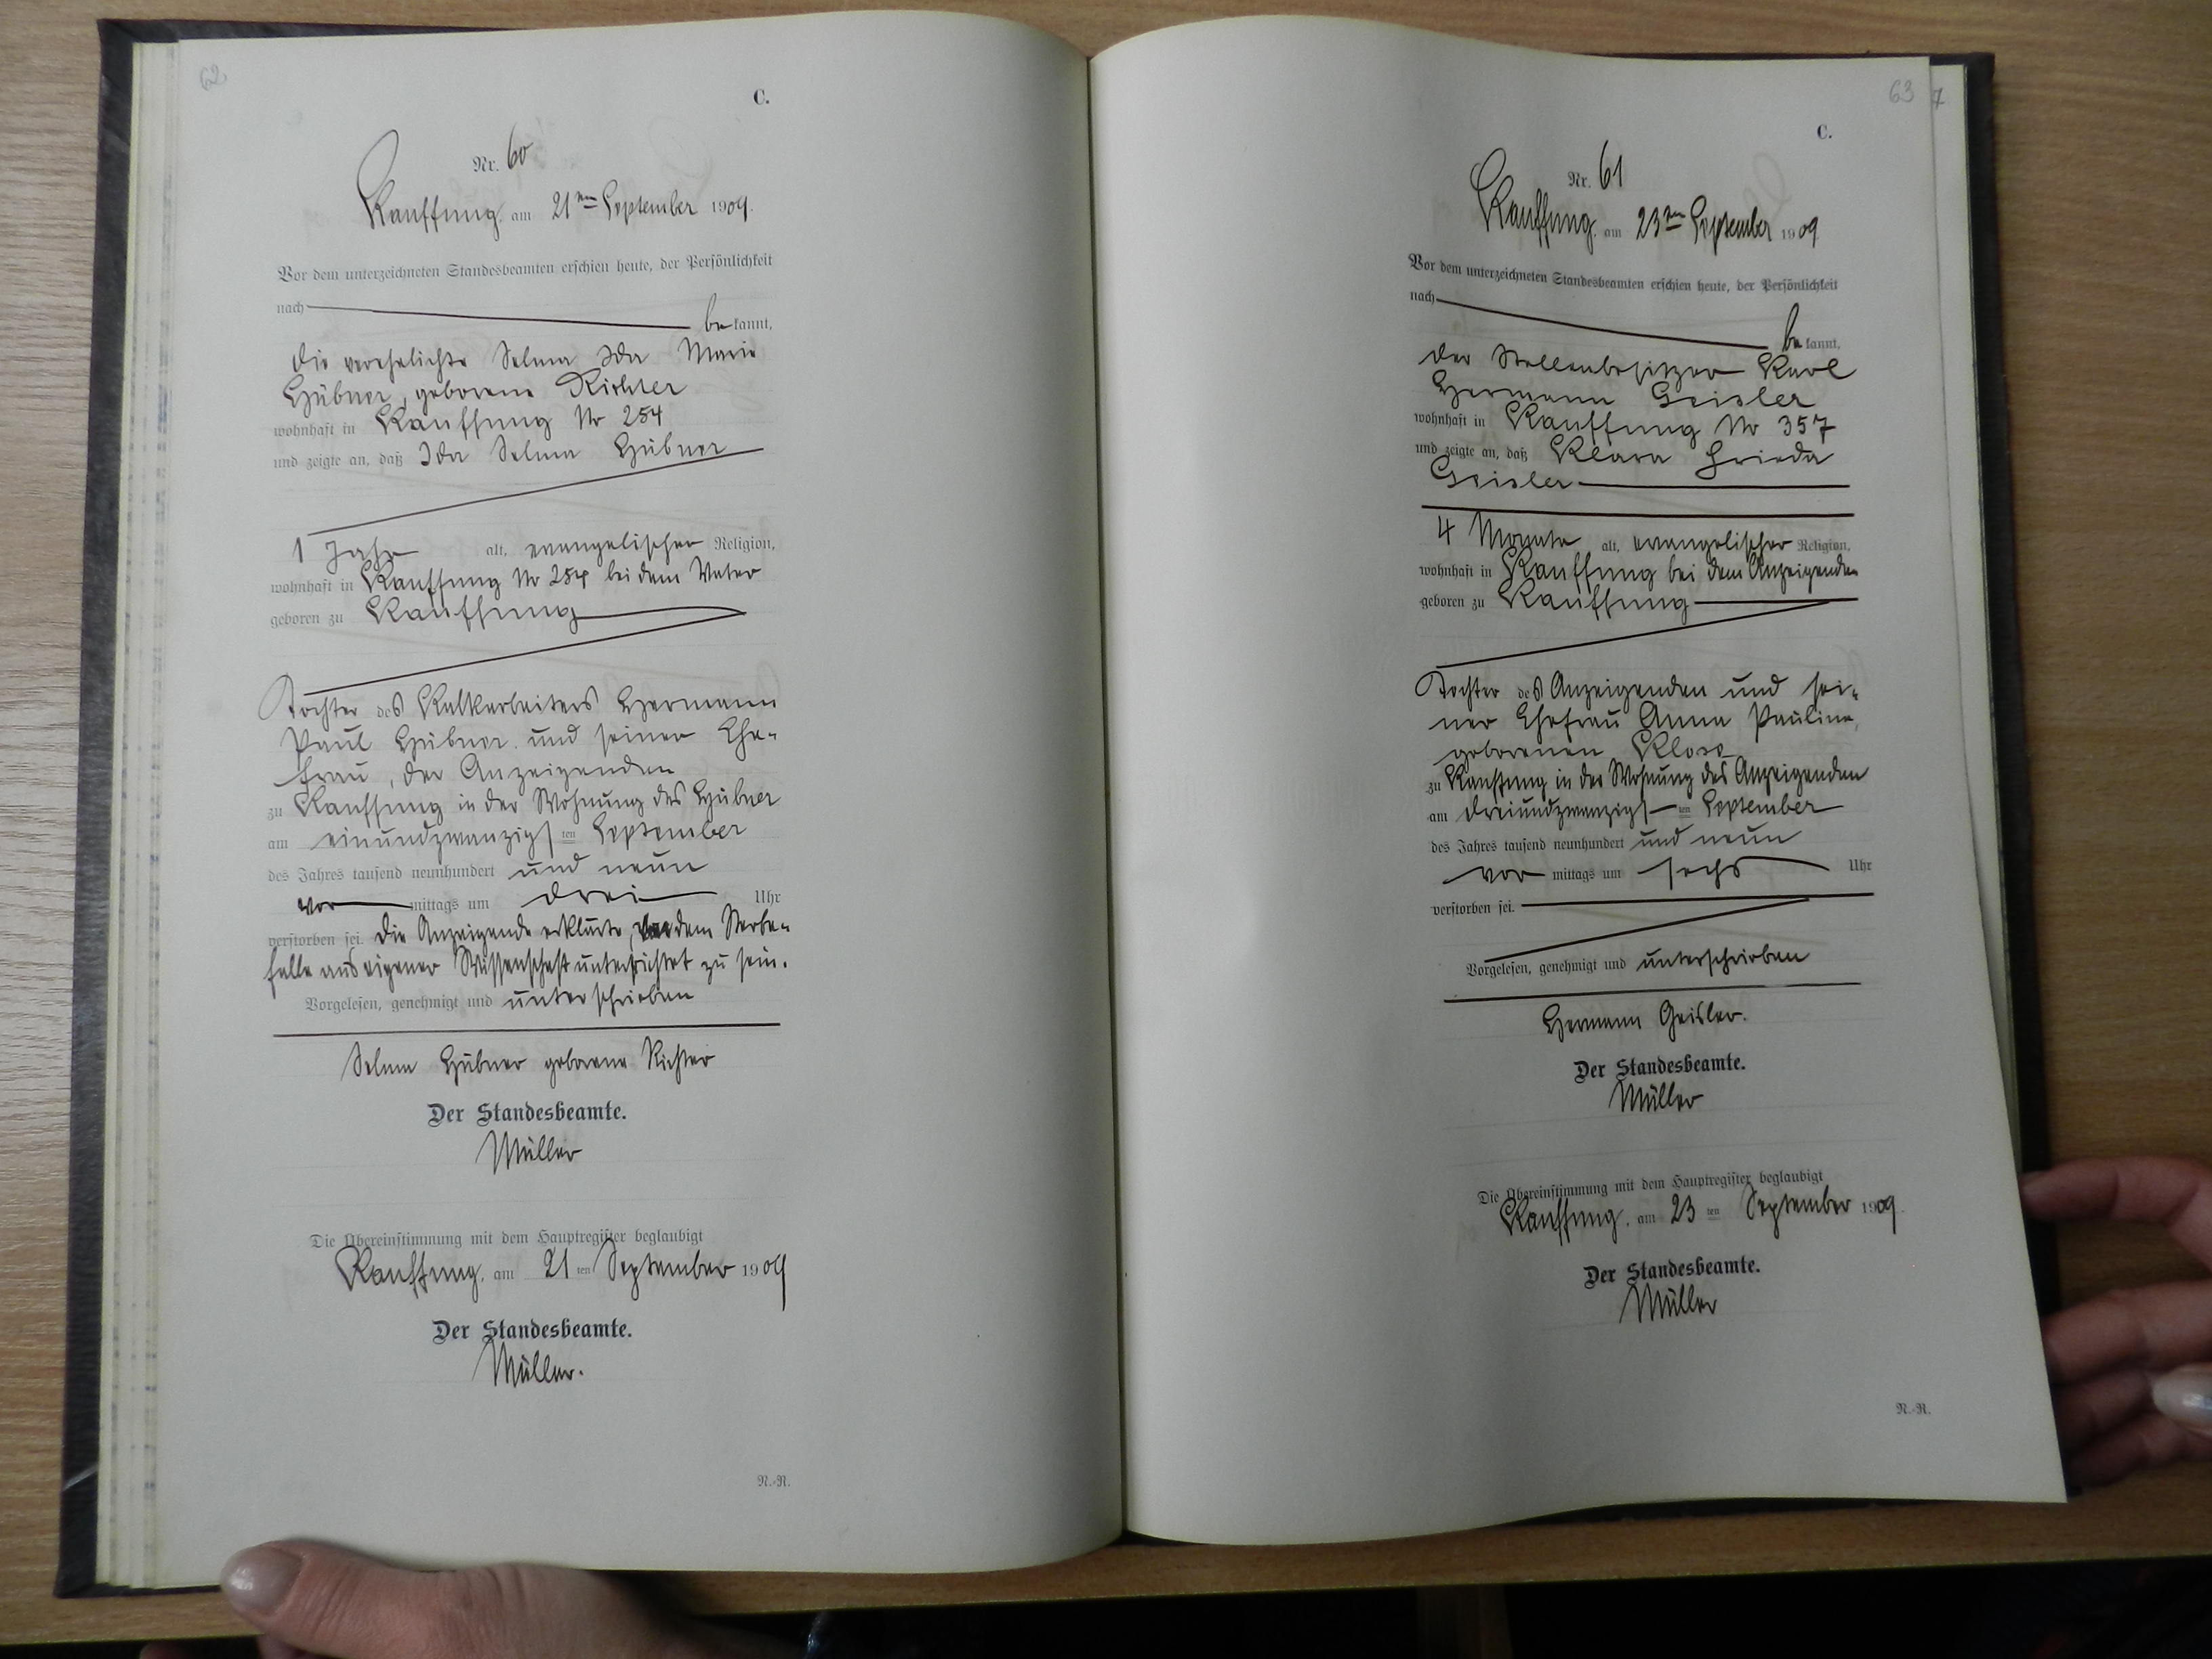 62
C.
Nr. 60
Kauffung, am 21ten September 1909.
Vor dem unterzeichneten Standesbeamten erschien heute, der Persönlichkeit
nach be kannt,
die verehelichte Selma Ida Marie
Hübner, geborene Richter
wohnhaft in Kauffung Nr 254
und zeigte an, daß Ida Selma Hübner
1 Jahr alt, evangelischer Religion,
wohnhaft in Kauffung Nr 254 bei dem Vater
geboren zu Kauffung
Tochter des Kalkarbeiters Hermann
Paul Hübner und seiner Ehe-
frau, der Anzeigenden
zu Kauffung in der Wohnung des Hübner
am einundzwanzigsten September
des Jahres tausend neunhundert und neun
vor mittags um drei Uhr
verstorben sei. Die Anzeigende erklärte, von dem Sterbe-
falle aus eigener Wissenschaft unterrichtet zu sein.
Vorgelesen, genehmigt und unterschrieben
Selma Hübner geborene Richter
Der Standesbeamte.
Müller
Die Übereinstimmung mit dem Hauptregister beglaubigt
Kauffung, am 21 ten September 1909
Der Standesbeamte.
Müller.
N.-R.
63
7
C.
Nr. 61
Kauffung, am 23ten September 1909
Vor dem unterzeichneten Standesbeamten erschien heute, der Persönlichkeit
nach be kannt,
der Stellenbesitzer Karl
Hermann Geisler
wohnhaft in Kauffung Nr 357
und zeigte an, daß Klara Frieda
Geisler
4 Monate alt, evangelischer Religion,
wohnhaft in Kauffung bei dem Anzeigenden
geboren zu Kauffung
Tochter des Anzeigenden und sei-
ner Ehefrau Anna Pauline,
geborenen Klose
zu Kauffung in der Wohnung des Anzeigenden
am dreiundzwanzigsten September
des Jahres tausend neunhundert und neun
vor mittags um sechs Uhr
verstorben sei.
Vorgelesen, genehmigt und unterschrieben
Hermann Geisler.
Der Standesbeamte.
Müller
Die Übereinstimmung mit dem Hauptregister beglaubigt
Kauffung, am 23 ten September 1909.
Der Standesbeamte.
Müller
N.-R.